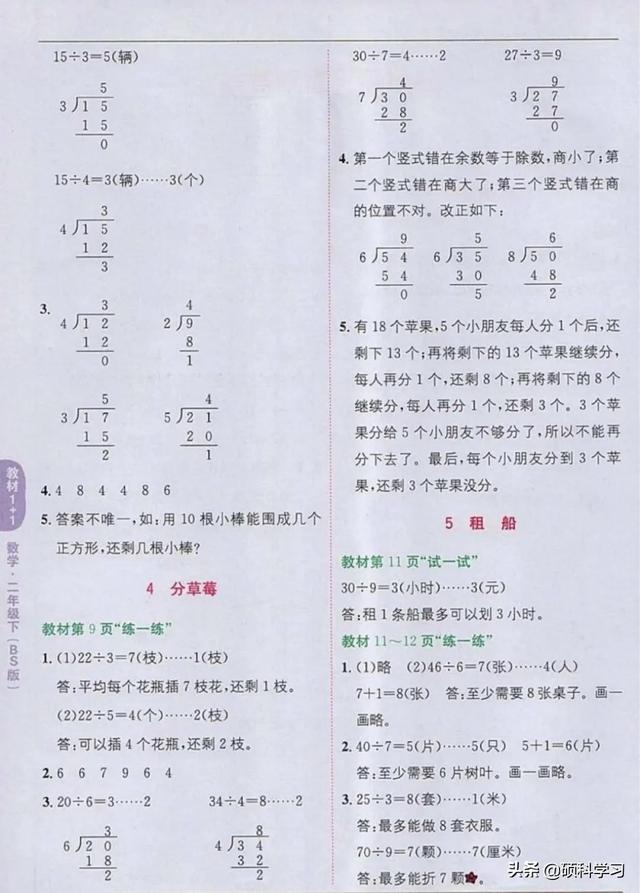 15÷3=5(辆)
5
3)1 5
1 5
0
15÷4=3(辆)……3(个)
3
4)1 5
1 2
3
3.
3
4)1 2
1 2
0
4
2)9
8
1
5
3)1 7
1 5
2
4
5)2 1
2 0
1
4. 4 8 4 4 8 6
5. 答案不唯一,如:用 10 根小棒能围成几个
正方形,还剩几根小棒?
4 分草莓
教材第 9 页“练一练”
1. (1)22÷3=7(枝)……1(枝)
答:平均每个花瓶插 7 枝花,还剩 1 枝。
(2)22÷5=4(个)……2(枝)
答:可以插 4 个花瓶,还剩 2 枝。
2. 6 6 7 9 6 4
3. 20÷6=3……2 34÷4=8……2
3
6)2 0
1 8
2
8
4)3 4
3 2
2
30÷7=4……2 27÷3=9
4
7)3 0
2 8
2
9
3)2 7
2 7
0
4. 第一个竖式错在余数等于除数,商小了;第
二个竖式错在商大了;第三个竖式错在商
的位置不对。改正如下:
9
6)5 4
5 4
0
5
6)3 5
3 0
5
6
8)5 0
4 8
2
5. 有 18 个苹果,5 个小朋友每人分 1 个后,还
剩下 13 个;再将剩下的 13 个苹果继续分,
每人再分 1 个,还剩 8 个;再将剩下的 8 个
继续分,每人再分 1 个,还剩 3 个。3 个苹
果分给 5 个小朋友不够分了,所以不能再
分下去了。最后,每个小朋友分到 3 个苹
果,还剩 3 个苹果没分。
5 租 船
教材第 11 页“试一试”
30÷9=3(小时)……3(元)
答:租 1 条船最多可以划 3 小时。
教材 11～12 页“练一练”
1. (1)略 (2)46÷6=7(张)……4(人)
7+1=8(张) 答:至少需要 8 张桌子。画一
画略。
2. 40÷7=5(片)……5(只) 5+1=6(片)
答:至少需要 6 片树叶。画一画略。
3. 25÷3=8(套)……1(米)
答:最多能做 8 套衣服。
70÷9=7(颗)……7(厘米)
答:最多能折 7 颗★。
教材1+1
数学·二年级下(BS版)
头条 @硕科学习